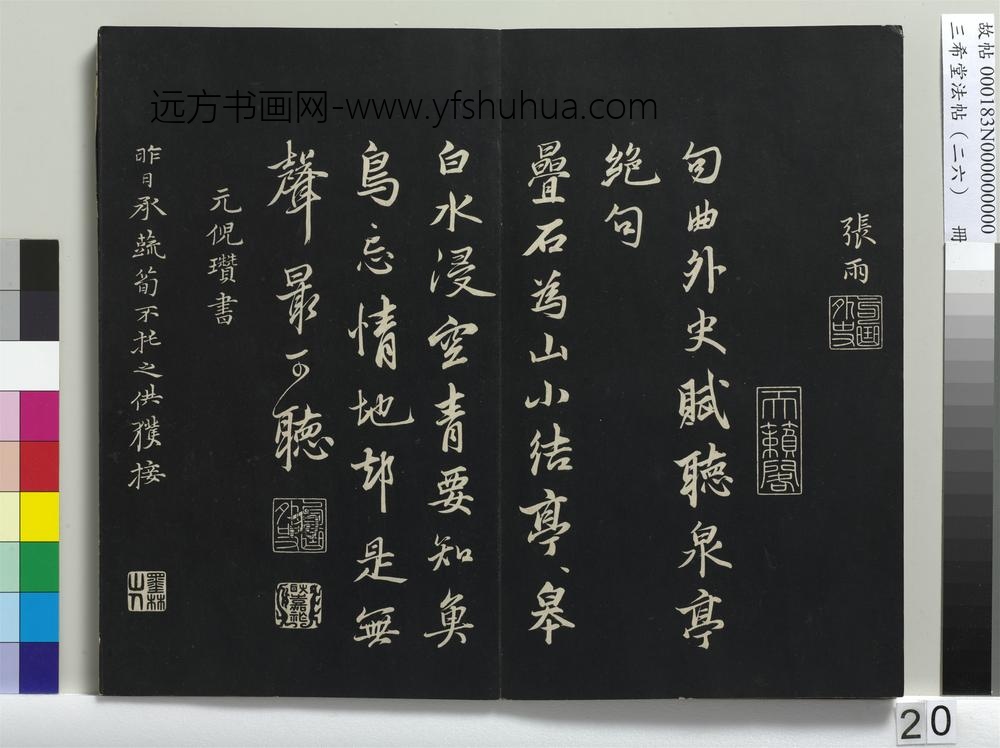 故帖 000183N000000000
三希堂法帖（二六） 冊
远方书画网-www.yfshuhua.com
張雨
句曲外史
天籟閣
句曲外史賦聽泉亭
絕句
疊石為山小結亭、皋
白水浸空青要知魚
鳥忘情地却是無
聲最可聽
句曲外史
元倪瓚書
昨日承蔬筍不托之供獲接
墨林山人
20